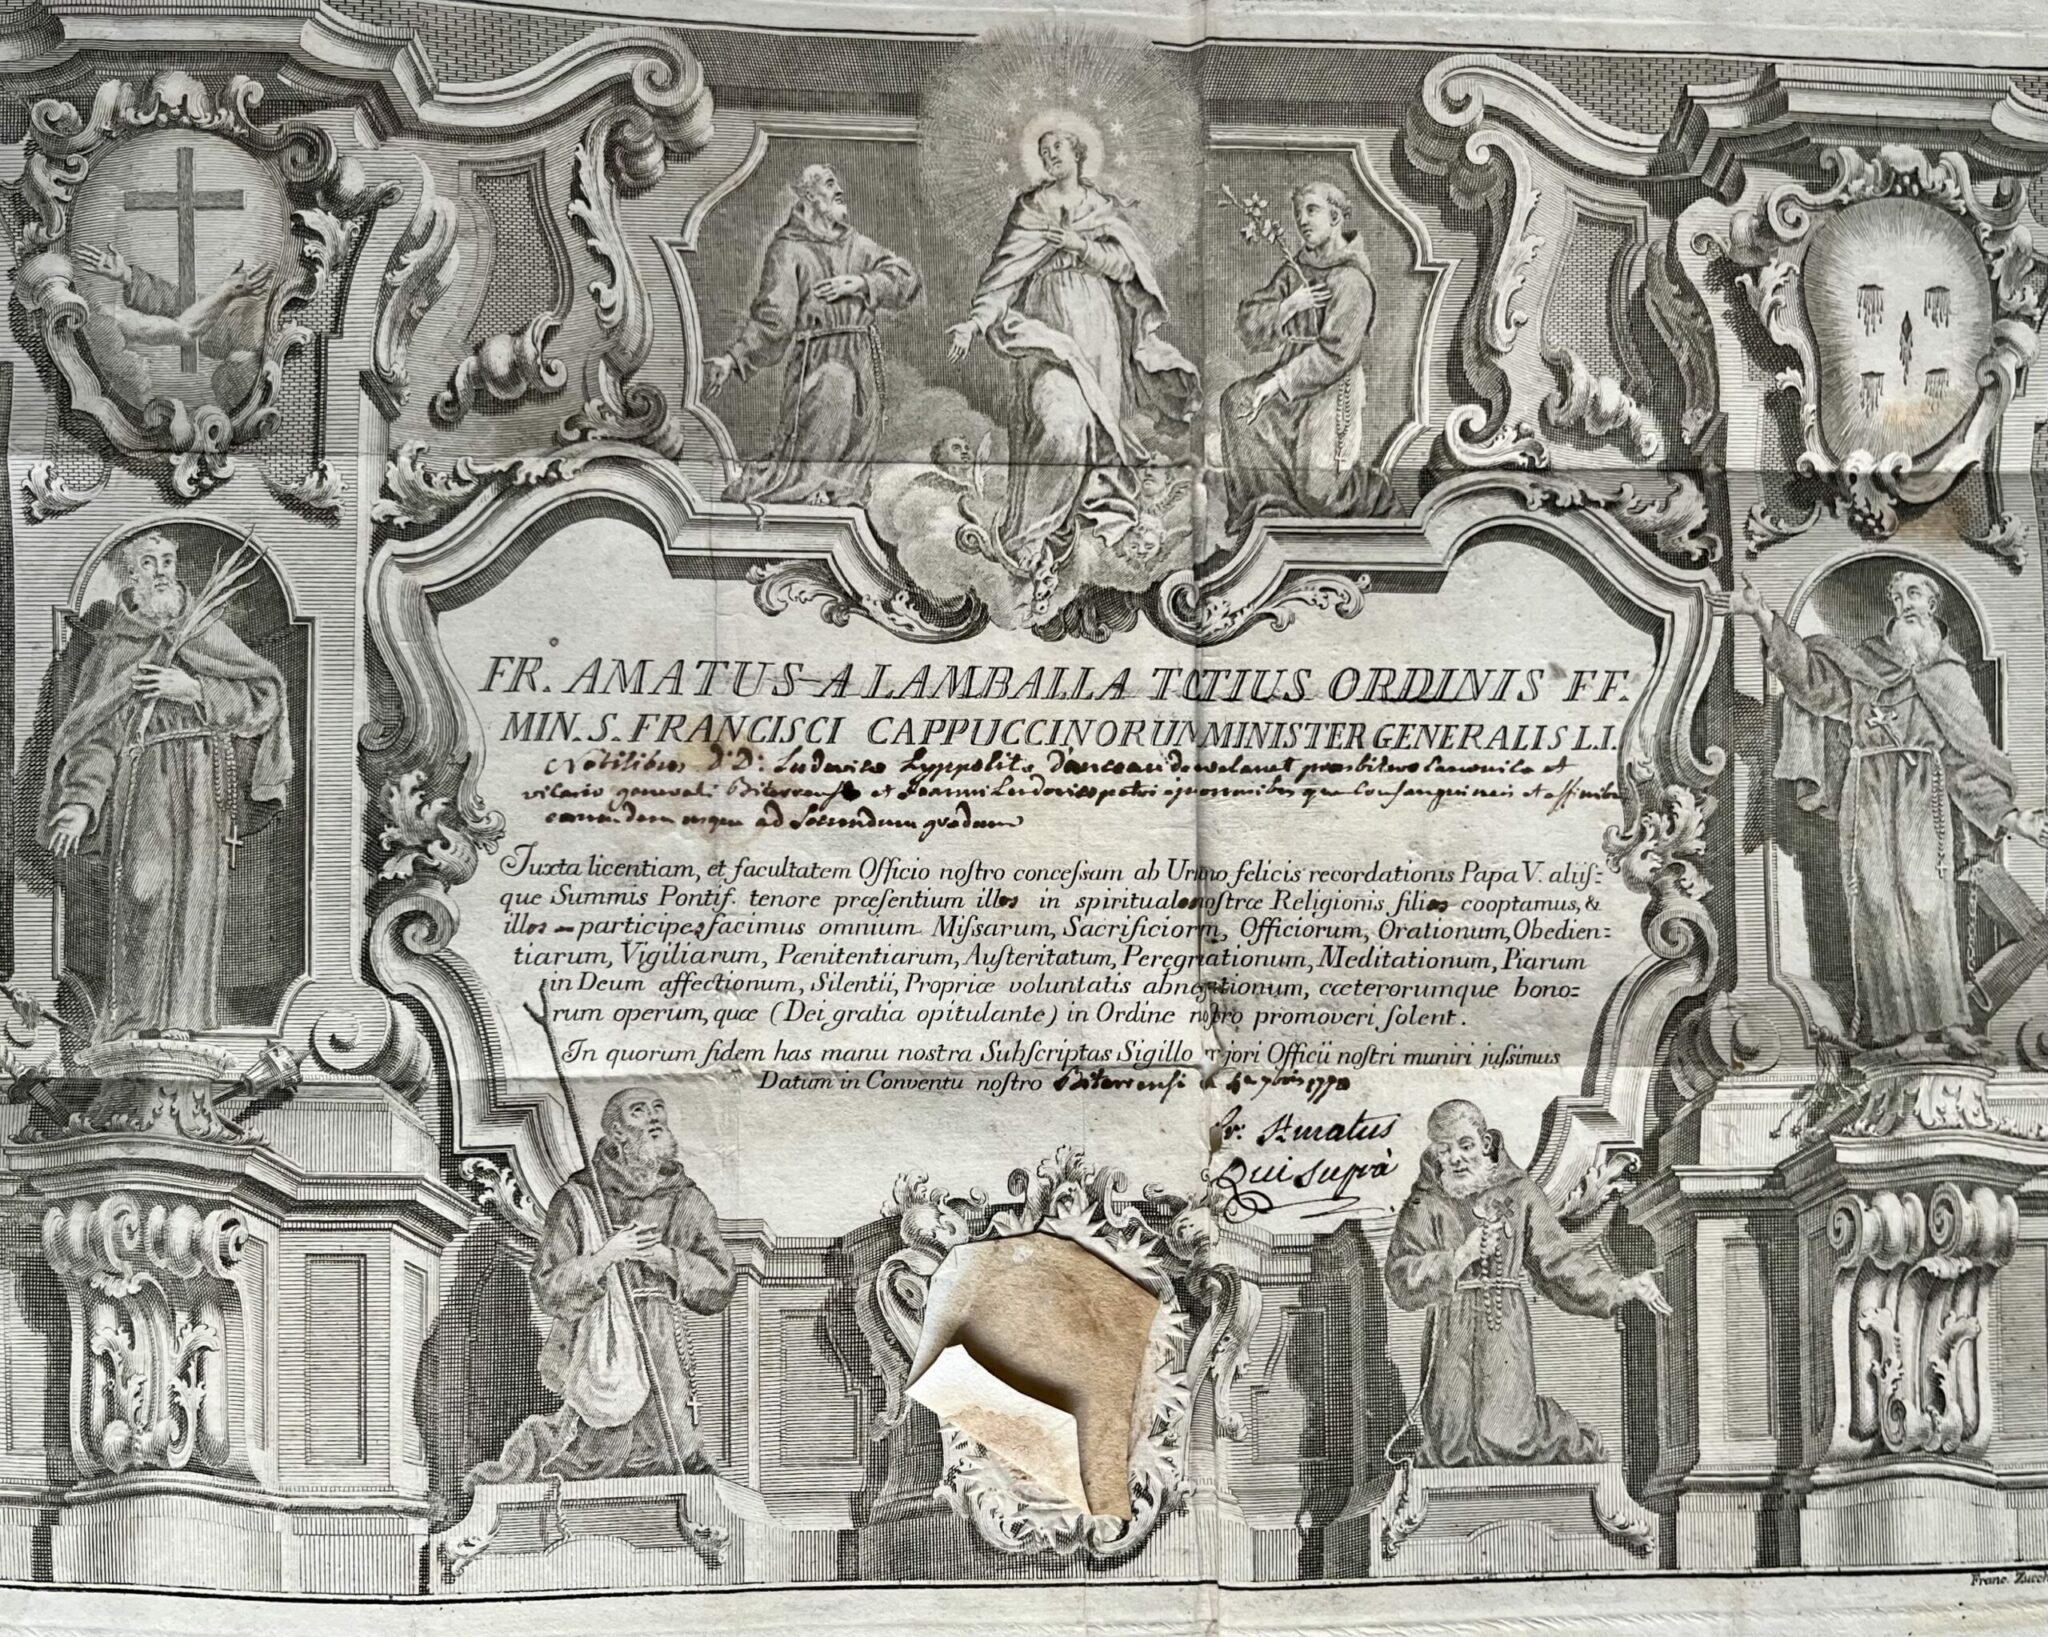 FR. AMATUS A LAMBALLA TOTIUS ORDINIS FF.
MIN. S. FRANCISCI CAPPUCCINORUM MINISTER GENERALIS L.I.
Nobilibus D.D. Ludovico hyppolito presbitero Canonico et
vicario generali Biterrensi et Joanni Ludovico patri consanguineis et affinibus
earumdem usque ad secundum gradum
Iuxta licentiam, et facultatem Officio noſtro conceſsam ab Urbano felicis recordationis Papa V. aliiſ=
que Summis Pontif. tenore præſentium illos in spirituales noſtræ Religionis filios cooptamus, &
illos participes facimus omnium Miſsarum, Sacrificiorum, Officiorum, Orationum, Obedien=
tiarum, Vigiliarum, Pœnitentiarum, Auſteritatum, Peregrinationum, Meditationum, Piarum
in Deum affectionum, Silentii, Propriæ voluntatis abnegationum, cæterorumque bono=
rum operum, quæ (Dei gratia opitulante) in Ordine noſtro promoveri ſolent.
In quorum fidem has manu nostra Subſcriptas Sigillo majori Officii noſtri muniri juſsimus
Datum in Conventu noſtro Biterrensi 7bris 1770
fr. Amatus
Qui suprà
Franc. Zucch